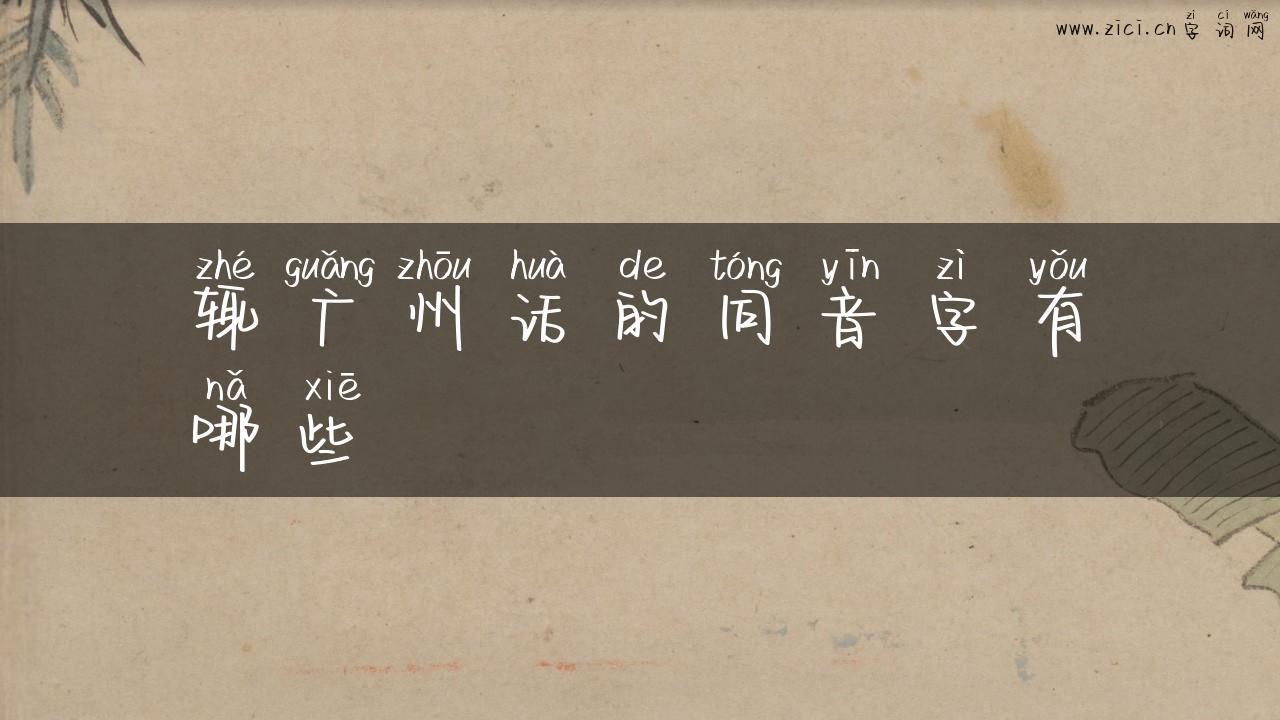 zì cí wǎng
www.zici.cn 字词网
zhé guǎng zhōu huà de tóng yīn zì yǒu
辄广州话的同音字有
nǎ xiē
哪些